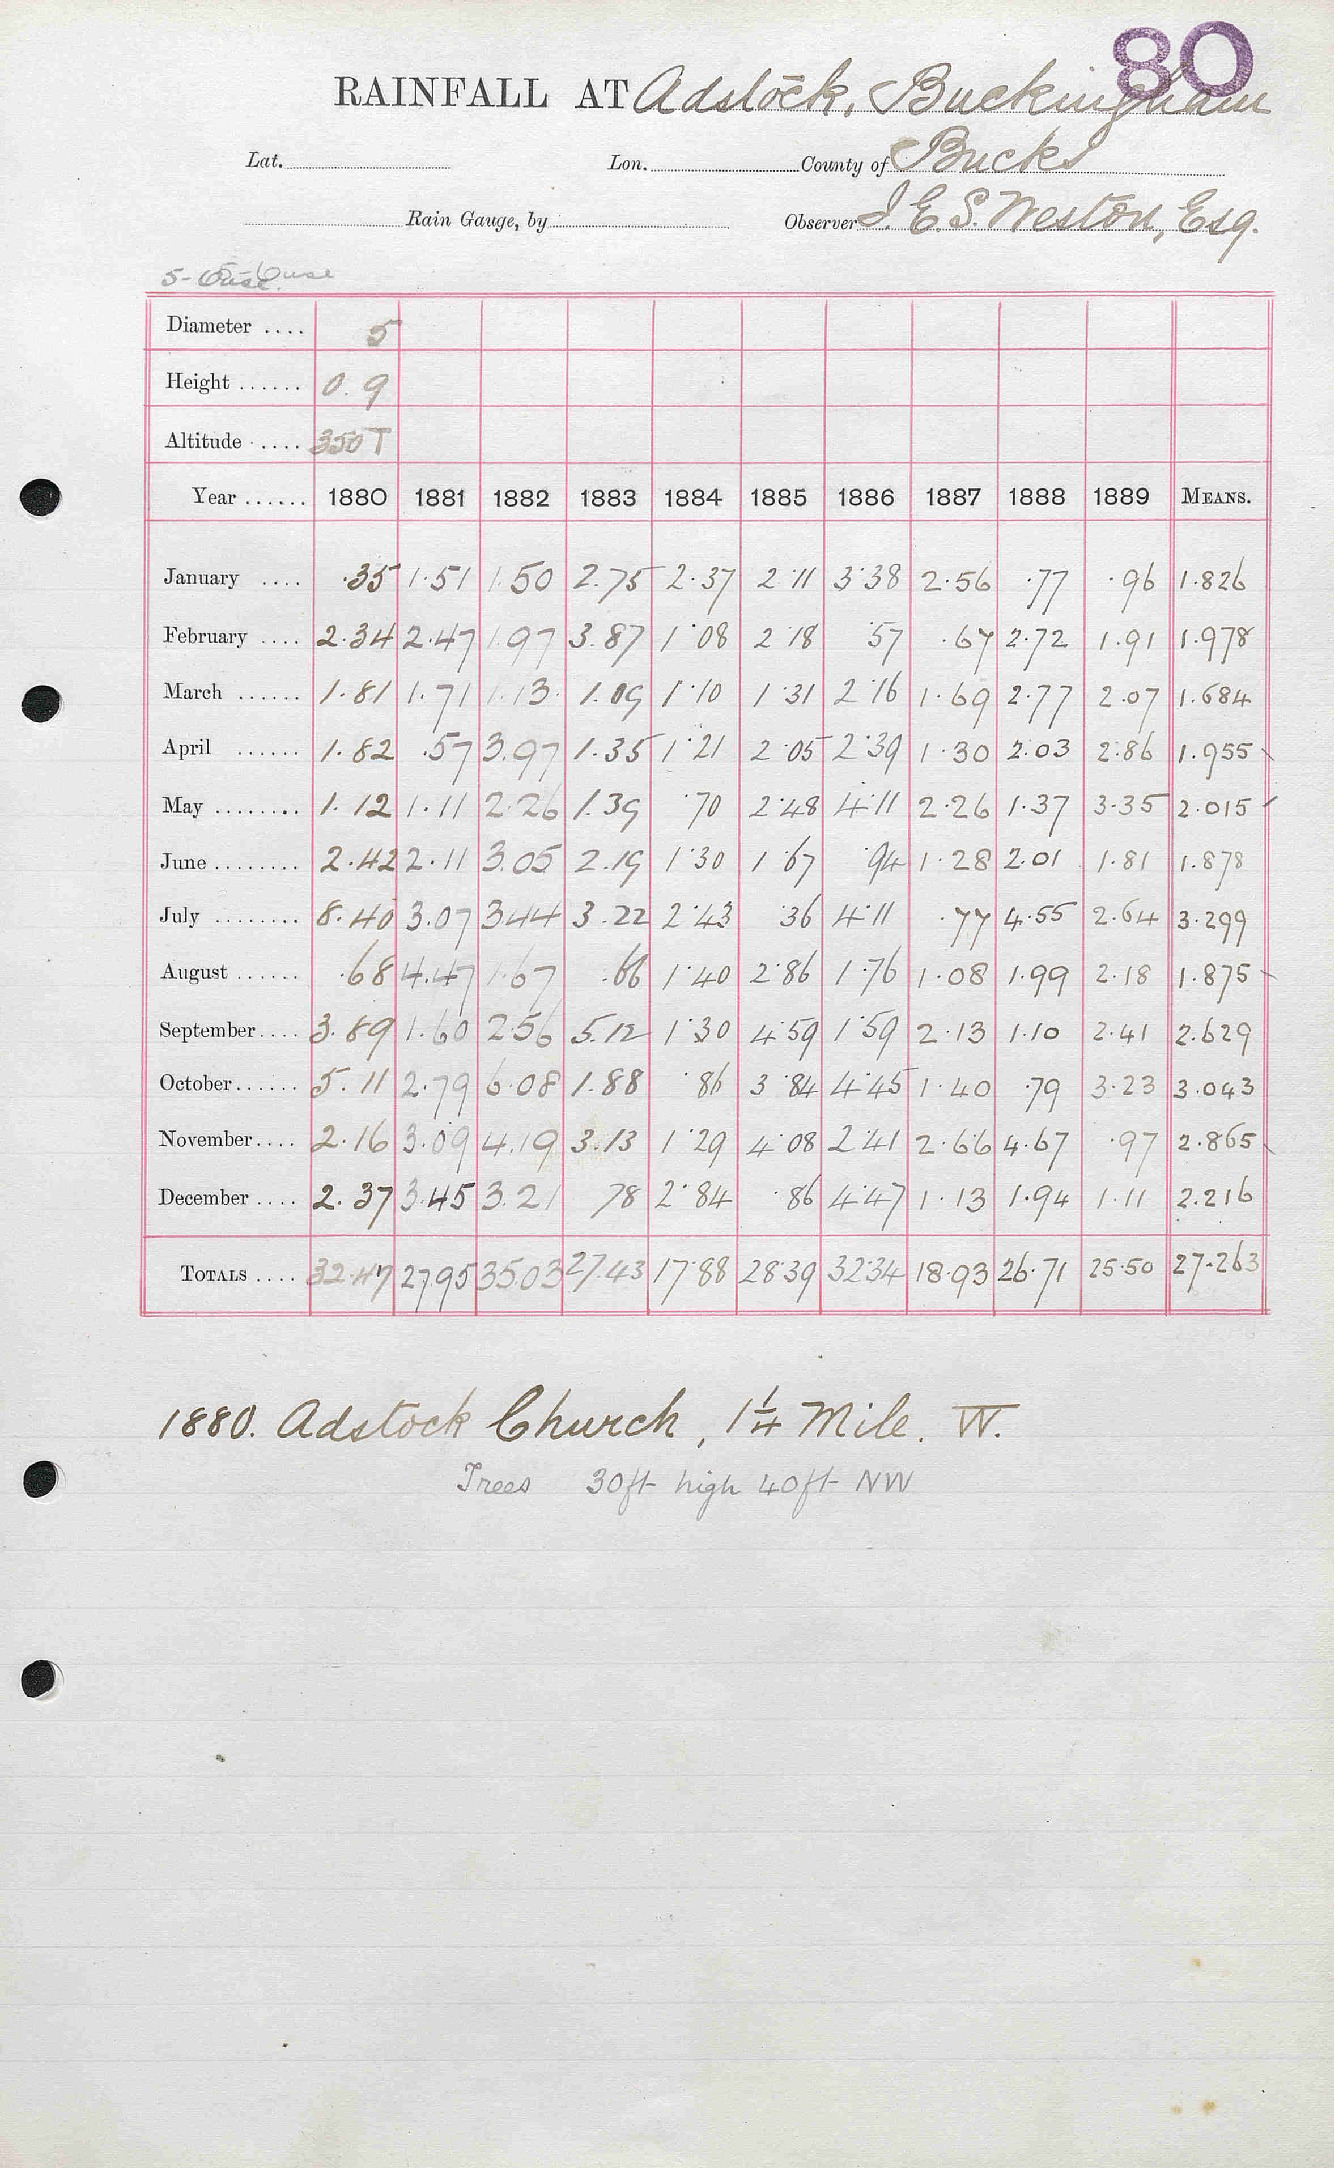 80
RAINFALL AT Adstock, Buckingham
Lat. Lon. County of Bucks
Rain Gauge, by Observer J. E. S. Weston, Esq.
5-Ouse
Diameter .... 5
Height ...... 0.9
Altitude .... 350 T
Year ...... 1880 1881 1882 1883 1884 1885 1886 1887 1888 1889 MEANS.
January .... .35 1.51 1.50 2.75 2.37 2.11 3.38 2.56 .77 .96 1.826
February .... 2.34 2.47 1.97 3.87 1.08 2.18 .57 .67 2.72 1.91 1.978
March ...... 1.81 1.71 1.13 1.09 1.10 1.31 2.16 1.69 2.77 2.07 1.684
April ...... 1.82 .57 3.97 1.35 1.21 2.05 2.39 1.30 2.03 2.86 1.955
May ........ 1.12 1.11 2.26 1.39 .70 2.48 4.11 2.26 1.37 3.35 2.015
June ........ 2.42 2.11 3.05 2.19 1.30 1.67 .94 1.28 2.01 1.81 1.878
July ........ 8.40 3.07 3.44 3.22 2.43 .36 4.11 .77 4.55 2.64 3.299
August ...... .68 4.47 1.67 .66 1.40 2.86 1.76 1.08 1.99 2.18 1.875
September .... 3.89 1.60 2.56 5.12 1.30 4.59 1.59 2.13 1.10 2.41 2.629
October ...... 5.11 2.79 6.08 1.88 .86 3.84 4.45 1.40 .79 3.23 3.043
November .... 2.16 3.09 4.19 3.13 1.29 4.08 2.41 2.66 4.67 .97 2.865
December .... 2.37 3.45 3.21 78 2.84 .86 4.47 1.13 1.94 1.11 2.216
TOTALS .... 32.47 27.95 35.03 27.43 17.88 28.39 32.34 18.93 26.71 25.50 27.263
1880. Adstock Church, 1¼ Mile. W.
Trees 30ft high 40ft NW